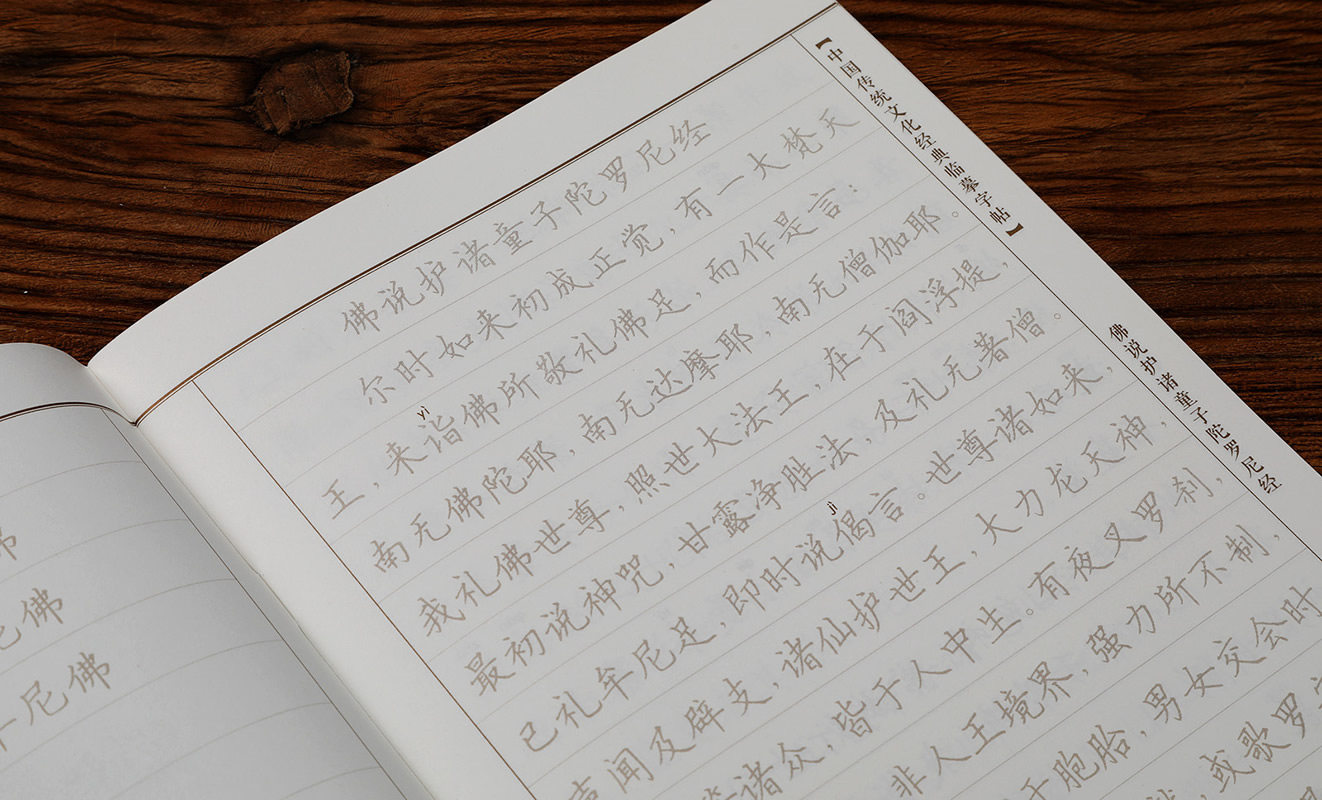 【中国传统文化经典临摹字帖】
佛说护诸童子陀罗尼经
佛说护诸童子陀罗尼经
尔时如来初成正觉，有一大梵天
yì
王，来诣佛所敬礼佛足，而作是言：
南无佛陀耶，南无达摩耶，南无僧伽耶。
我礼佛世尊，照世大法王，在于阎浮提，
最初说神咒，甘露净胜法，及礼无著僧。
jì
已礼牟尼足，即时说偈言。世尊诸如来，
声闻及辟支，诸仙护世王，大力龙天神，
等诸众，皆于人中生。有夜叉罗刹，
非人王境界，强力所不制，
于胞胎，男女交会时
或歌罗
佛
佛
尼佛